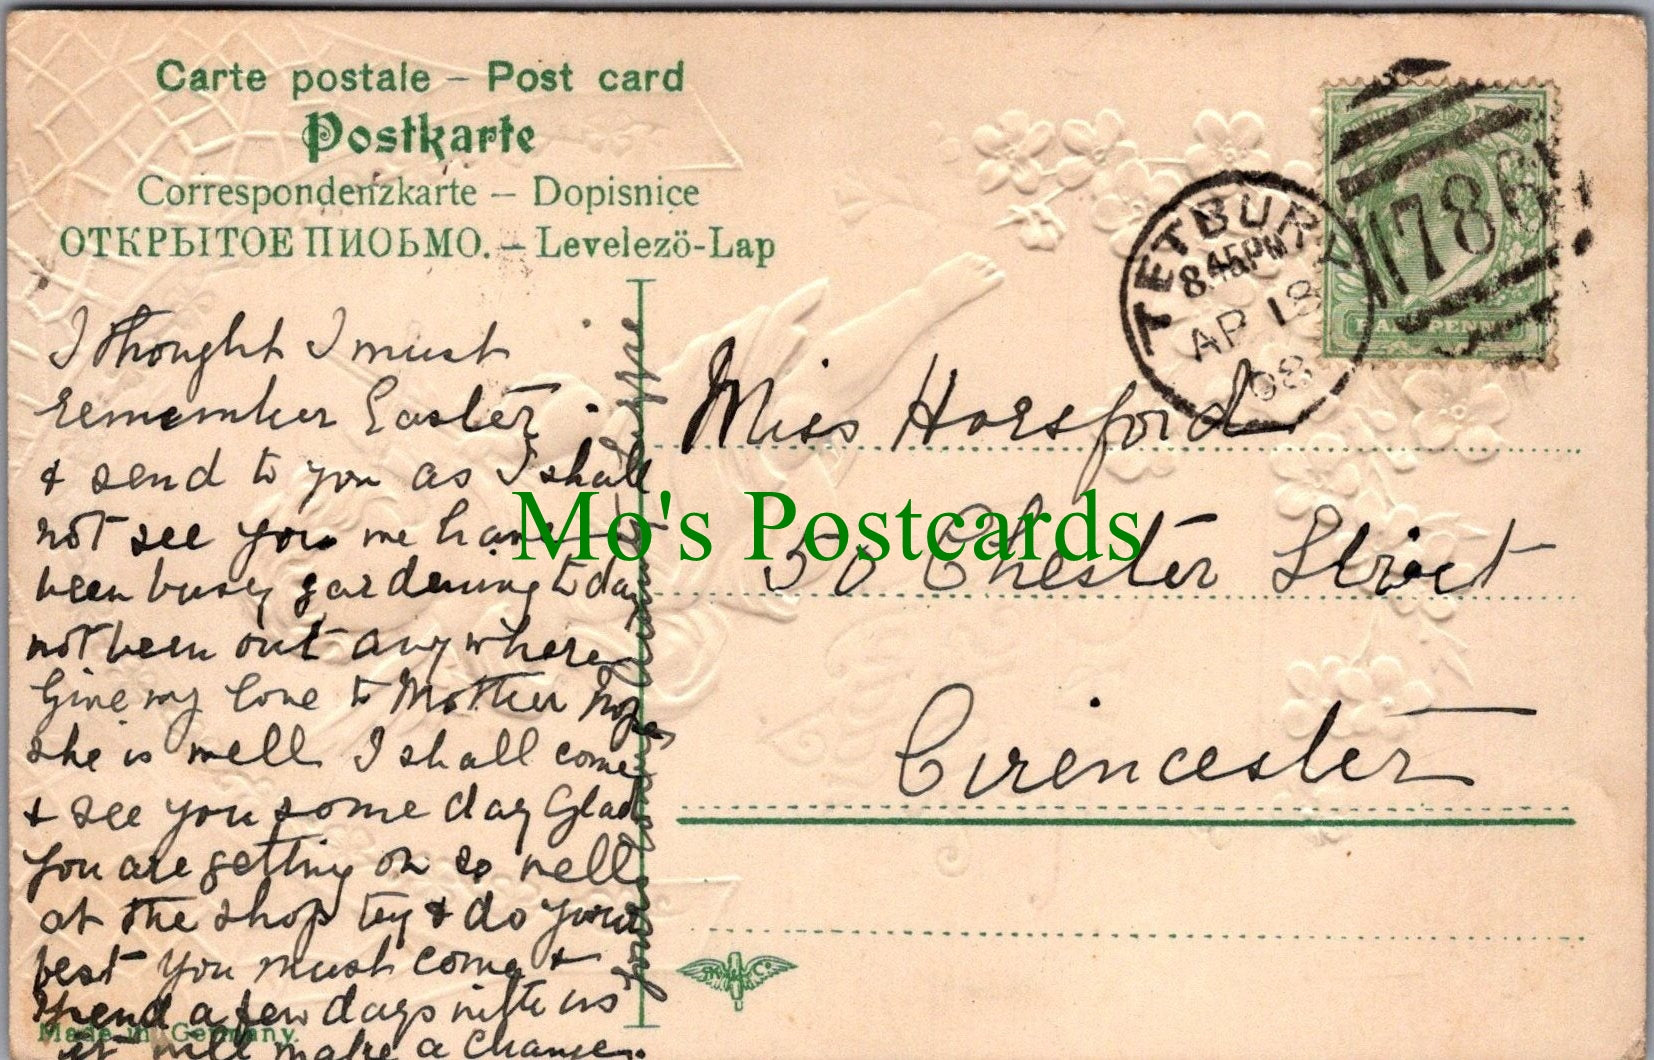 Carte postale – Post card
Postkarte
Correspondenzkarte – Dopisnice
ОТКРЫТОЕ ПИОЬМО. – Levelezö-Lap
I thought I must
remember Easter
& send to you as I shall
not see you we have
been busy gardening to day
not been out any where
Give my love to Mother hope
she is well I shall come
& see you some day Glad
you are getting on so well
at the shop try & do your
best you must come &
spend a few days with us
it will make a change.
Made in Germany.
TETBURY
8.45PM
AP 18
08
1786
HALFPENNY
Miss Horsford
50 Chester Street
Cirencester
Mo's Postcards